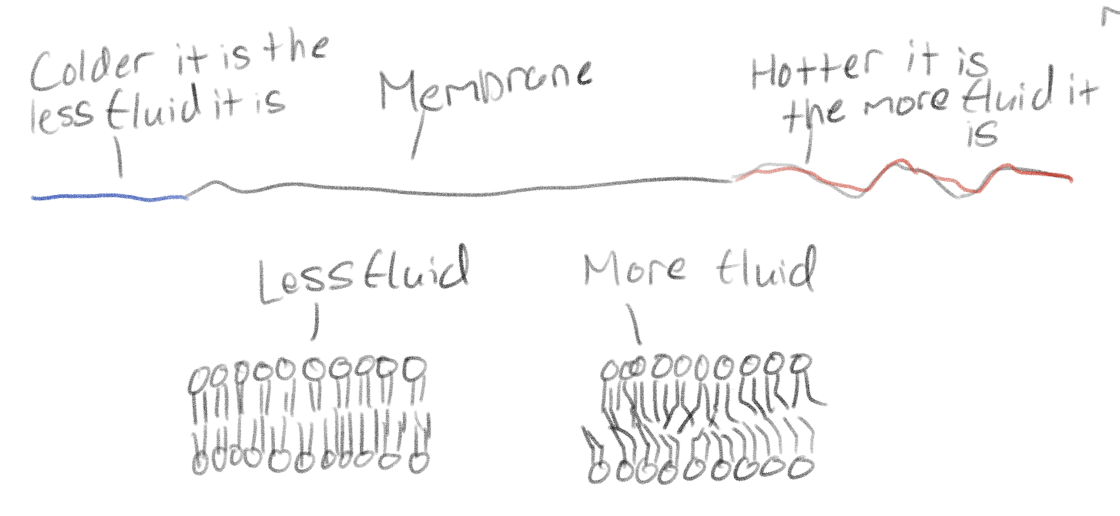 Colder it is the
less fluid it is
Membrane
Hotter it is
the more fluid it
is
Less fluid
More fluid